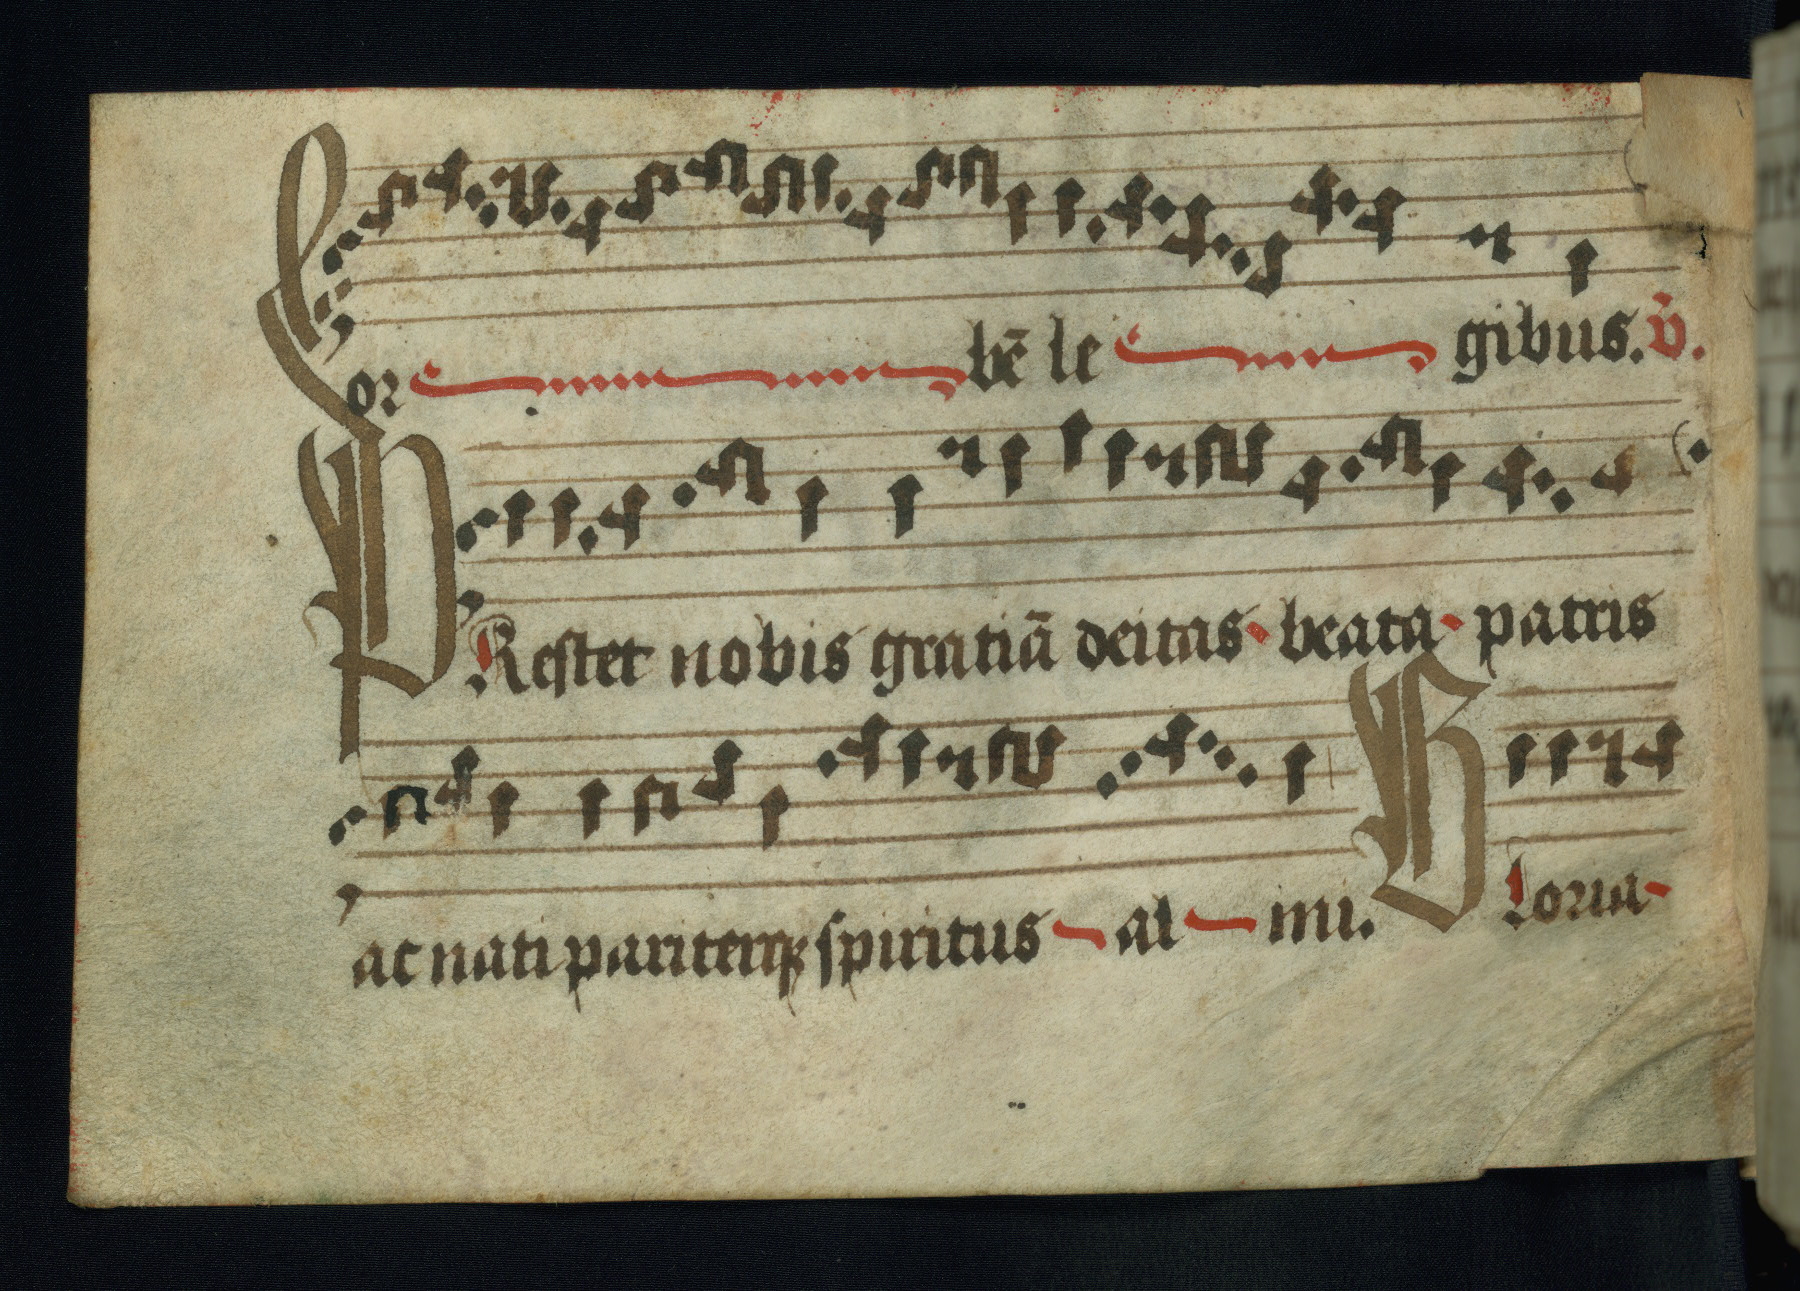 or bē le gibus. v̄.
PRestet nobis gratiā deitas beata patris
ac nati pariterqꝫ spiritus al mi. Gloria